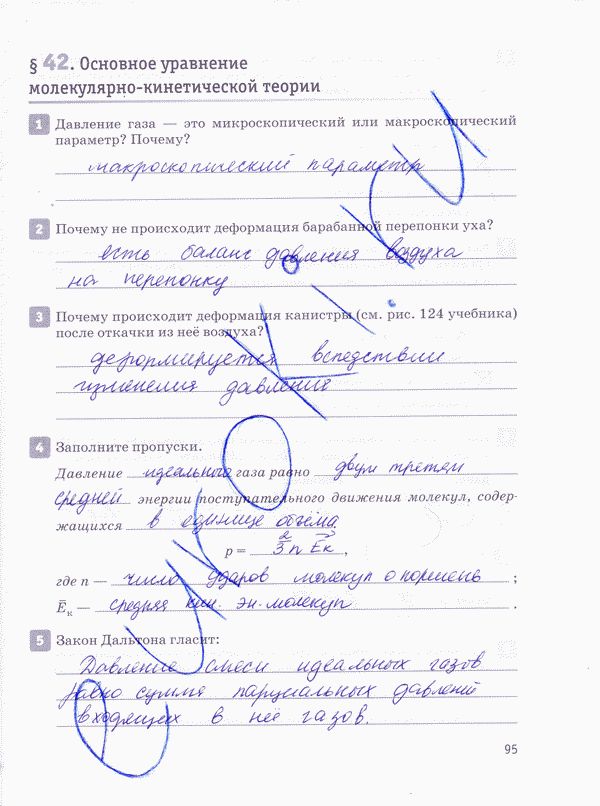 § 42. Основное уравнение
молекулярно-кинетической теории
1 Давление газа — это микроскопический или макроскопический
параметр? Почему?
макроскопический параметр
2 Почему не происходит деформация барабанной перепонки уха?
есть баланс давления воздуха
на перепонку
3 Почему происходит деформация канистры (см. рис. 124 учебника)
после откачки из неё воздуха?
деформируется вследствии
изменения давления
4 Заполните пропуски.
Давление идеального газа равно двум третям
средней энергии поступательного движения молекул, содер-
жащихся в единице объёма
p = 2/3 n Ēк ,
где n — число ударов молекул о поршень ;
Ēк — средняя кин. эн. молекул .
5 Закон Дальтона гласит:
Давление смеси идеальных газов
равно сумме парциальных давлений
входящих в неё газов.
95